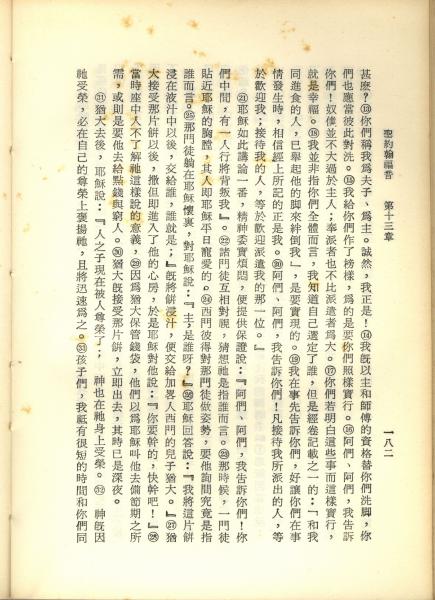 聖約翰福音　第十三章
一八二
甚麽？⑬你們稱我爲夫子、爲主。誠然，我正是！⑭我旣以主和師傅的資格替你們洗脚，你
們也應當彼此對洗。⑮我給你們作了榜樣，爲的是要你們照樣實行。⑯阿們、阿們，我告訴
你們！奴僕並不大過於主人；奉派者也不比派遣者爲大。⑰你們若明白這些事而這樣實行，
就是幸福。⑱我並非指你們全體而言，我知道自己選定了誰，但是經卷記載之一的：「和我
同進食的人，已舉起他的脚來絆倒我」，是要實現的。⑲我在事先告訴你們，好讓你們在事
情發生時，相信經上所記的正是我。⑳阿們、阿們，我告訴你們！凡接待我所派出的人，等
於歡迎我；接待我的人，等於歡迎派遣我的那一位。』
㉑耶穌如此講論一番，精神委實煩悶，便提供保證說：『阿們、阿們，我告訴你們！你
們中間，有一人行將背叛我』。㉒諸門徒互相對視，猜想祂是指誰而言。㉓那時候，一門徒
貼近耶穌的胸膛，其人卽耶穌平日寵愛的。㉔西門彼得對那門徒做姿勢，要他詢問究竟是指
誰而言。㉕那門徒躺在耶穌懷裏，對耶穌說：『主，是誰呀？』㉖耶穌回答說：『我將這片餅
浸在液汁中以後，交給誰，誰就是；』旣將餅浸汁，便交給加畧人西門的兒子猶大。㉗猶
大接受那片餅以後，撒但卽進入了他的心房，於是耶穌對他說：『你要幹的，快幹吧！』㉘
當時座中人不了解祂這樣說的意義，㉙因爲猶大保管錢袋，他們以爲耶穌叫他去備節期之所
需，或則是要他去給點錢與窮人。㉚猶大旣接受那片餅，立卽出去，其時已是深夜。
㉛猶大去後，耶穌說：『人之子現在被人尊榮了；　神也在祂身上受榮。㉜　神旣因
祂受榮，必在自己的尊榮上褒揚祂，且將迅速爲之。㉝孩子們，我祗有很短的時間和你們同